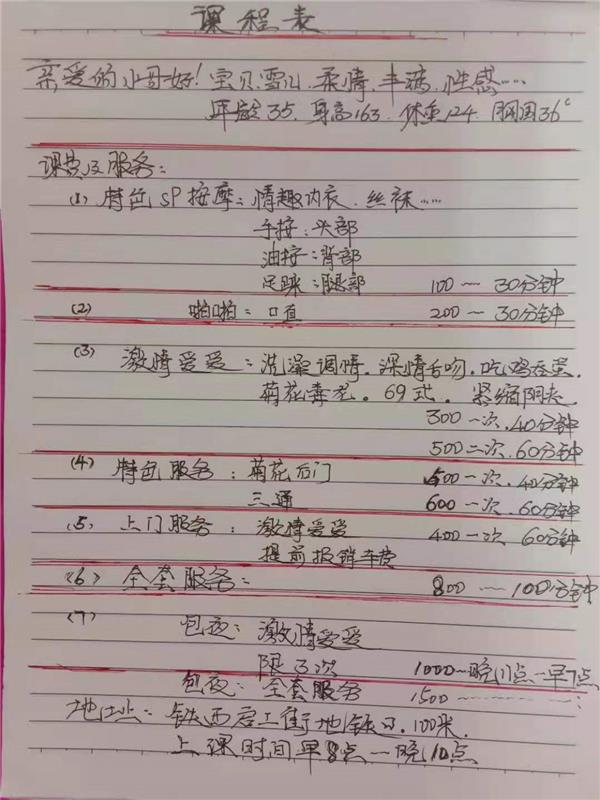 课程表
亲爱的小哥好！宝贝雪儿.柔情.丰满.性感……
年龄35.身高163.体重124.胸围36℃
课费及服务：
(1) 特色SP按摩：情趣内衣.丝袜……
手按：头部
油按：背部
足踩：腿部 100一30分钟
(2) 啪啪：口值 200～30分钟
(3) 激情爱爱：洗澡调情.深情舌吻.吃鸡吞蛋.
菊花毒龙。69式.紧缩阴夹.
300一次.40分钟
500二次.60分钟
(4) 特色服务：菊花后门 500一次.40分钟
三通 600一次.60分钟
(5) 上门服务：激情爱爱 400一次 60分钟
提前报销车费
(6) 全套服务： 800一100分钟
(7) 包夜：激情爱爱
限3次 1000～晚11点一早7点
包夜：全套服务 1500…………
地址：铁西 工街地铁口.100米.
上课时间早8点一晚10点